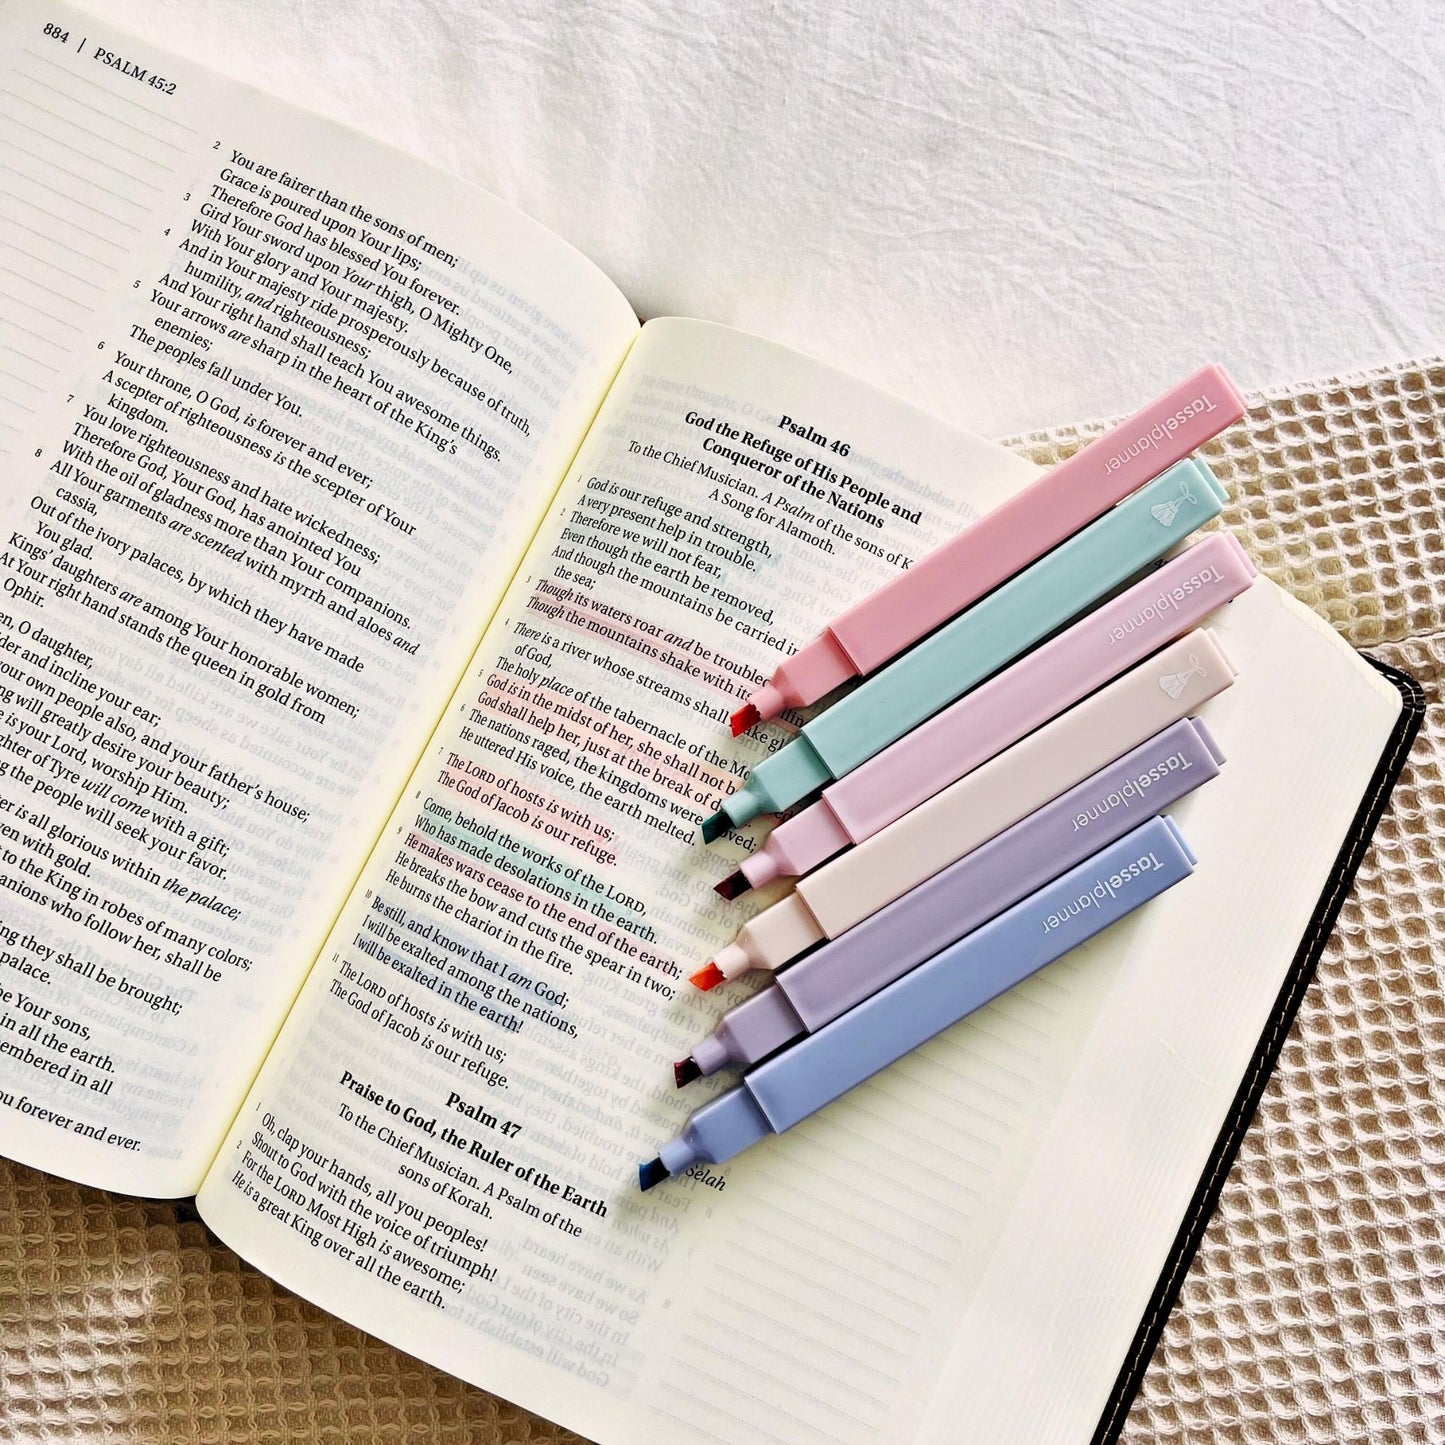 884 | PSALM 45:2
2 You are fairer than the sons of men;
Grace is poured upon Your lips;
Therefore God has blessed You forever.
3 Gird Your sword upon Your thigh, O Mighty One,
With Your glory and Your majesty.
4 And in Your majesty ride prosperously because of truth,
humility, and righteousness;
And Your right hand shall teach You awesome things.
5 Your arrows are sharp in the heart of the King's
enemies;
The peoples fall under You.
6 Your throne, O God, is forever and ever;
A scepter of righteousness is the scepter of Your
kingdom.
7 You love righteousness and hate wickedness;
Therefore God, Your God, has anointed You
With the oil of gladness more than Your companions.
8 All Your garments are scented with myrrh and aloes and
cassia,
Out of the ivory palaces, by which they have made
You glad.
Kings' daughters are among Your honorable women;
At Your right hand stands the queen in gold from
Ophir.
O daughter,
and incline your ear;
your own people also, and your father's house;
will greatly desire your beauty;
is your Lord, worship Him.
of Tyre will come with a gift;
the people will seek your favor.
is all glorious within the palace;
with gold.
to the King in robes of many colors;
who follow her, shall be
they shall be brought;
palace.
be Your sons,
in all the earth.
in all
forever and ever.
Psalm 46
God the Refuge of His People and
Conqueror of the Nations
To the Chief Musician. A Psalm of the sons of
A Song for Alamoth.
1 God is our refuge and strength,
A very present help in trouble.
2 Therefore we will not fear,
Even though the earth be removed,
And though the mountains be carried
the sea;
3 Though its waters roar and be troubled
Though the mountains shake with its
4 There is a river whose streams shall
of God,
The holy place of the tabernacle of the
5 God is in the midst of her, she shall not
God shall help her, just at the break of
6 The nations raged, the kingdoms were
He uttered His voice, the earth melted.
7 The LORD of hosts is with us;
The God of Jacob is our refuge.
8 Come, behold the works of the LORD,
Who has made desolations in the earth.
9 He makes wars cease to the end of the earth;
He breaks the bow and cuts the spear in two;
He burns the chariot in the fire.
10 Be still, and know that I am God;
I will be exalted among the nations,
I will be exalted in the earth!
11 The LORD of hosts is with us;
The God of Jacob is our refuge.
Selah
Psalm 47
Praise to God, the Ruler of the Earth
To the Chief Musician. A Psalm of the
sons of Korah.
1 Oh, clap your hands, all you peoples!
Shout to God with the voice of triumph!
2 For the LORD Most High is awesome;
He is a great King over all the earth.
Tasselplanner
Tasselplanner
Tasselplanner
Tasselplanner